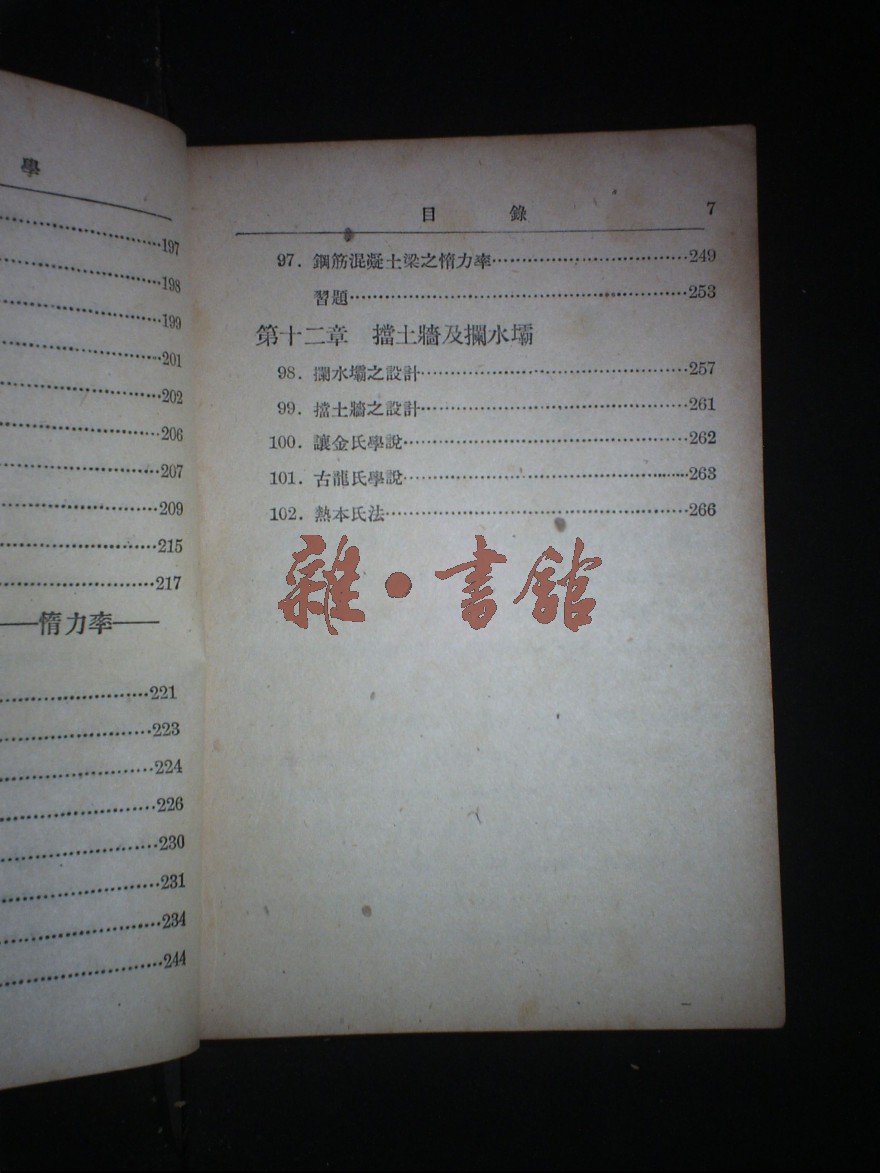 學
197
198
199
201
202
206
207
209
215
217
——惰力率——
221
223
224
226
230
231
234
244
目 錄 7
97. 鋼筋混凝土梁之惰力率……249
習題……253
第十二章 擋土牆及攔水壩
98. 攔水壩之設計……257
99. 擋土牆之設計……261
100. 讓金氏學說……262
101. 古龍氏學說……263
102. 熱本氏法……266
雜·書館